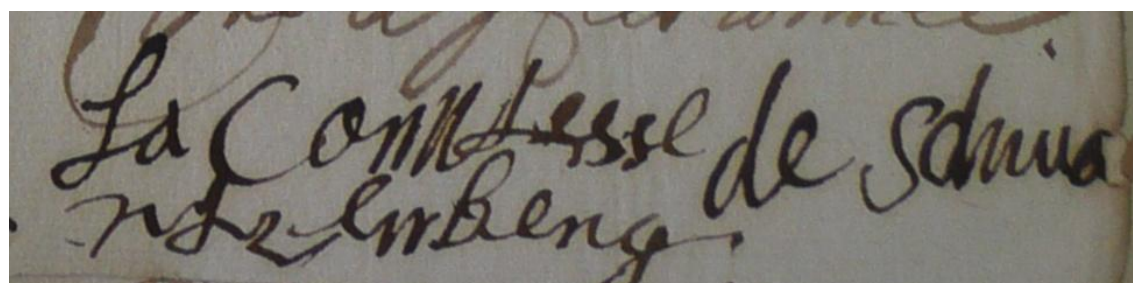 La Comtesse de Schwa
rtzemberg.